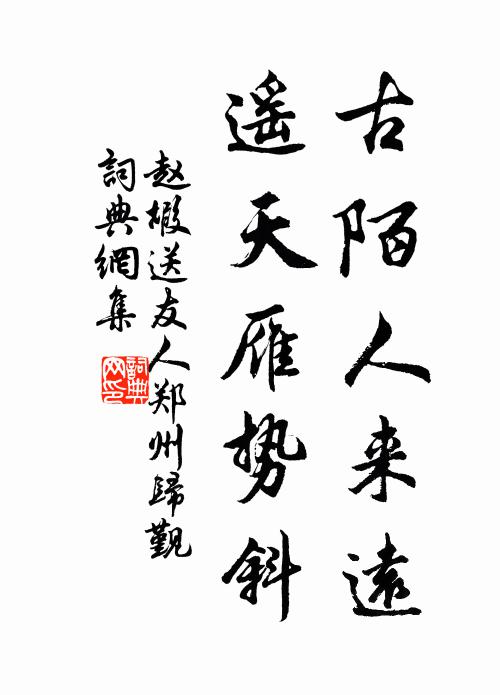 古陌人来遠
遥天雁势斜
赵嘏送友人郑州歸觐
詞典網集
詞典
网印